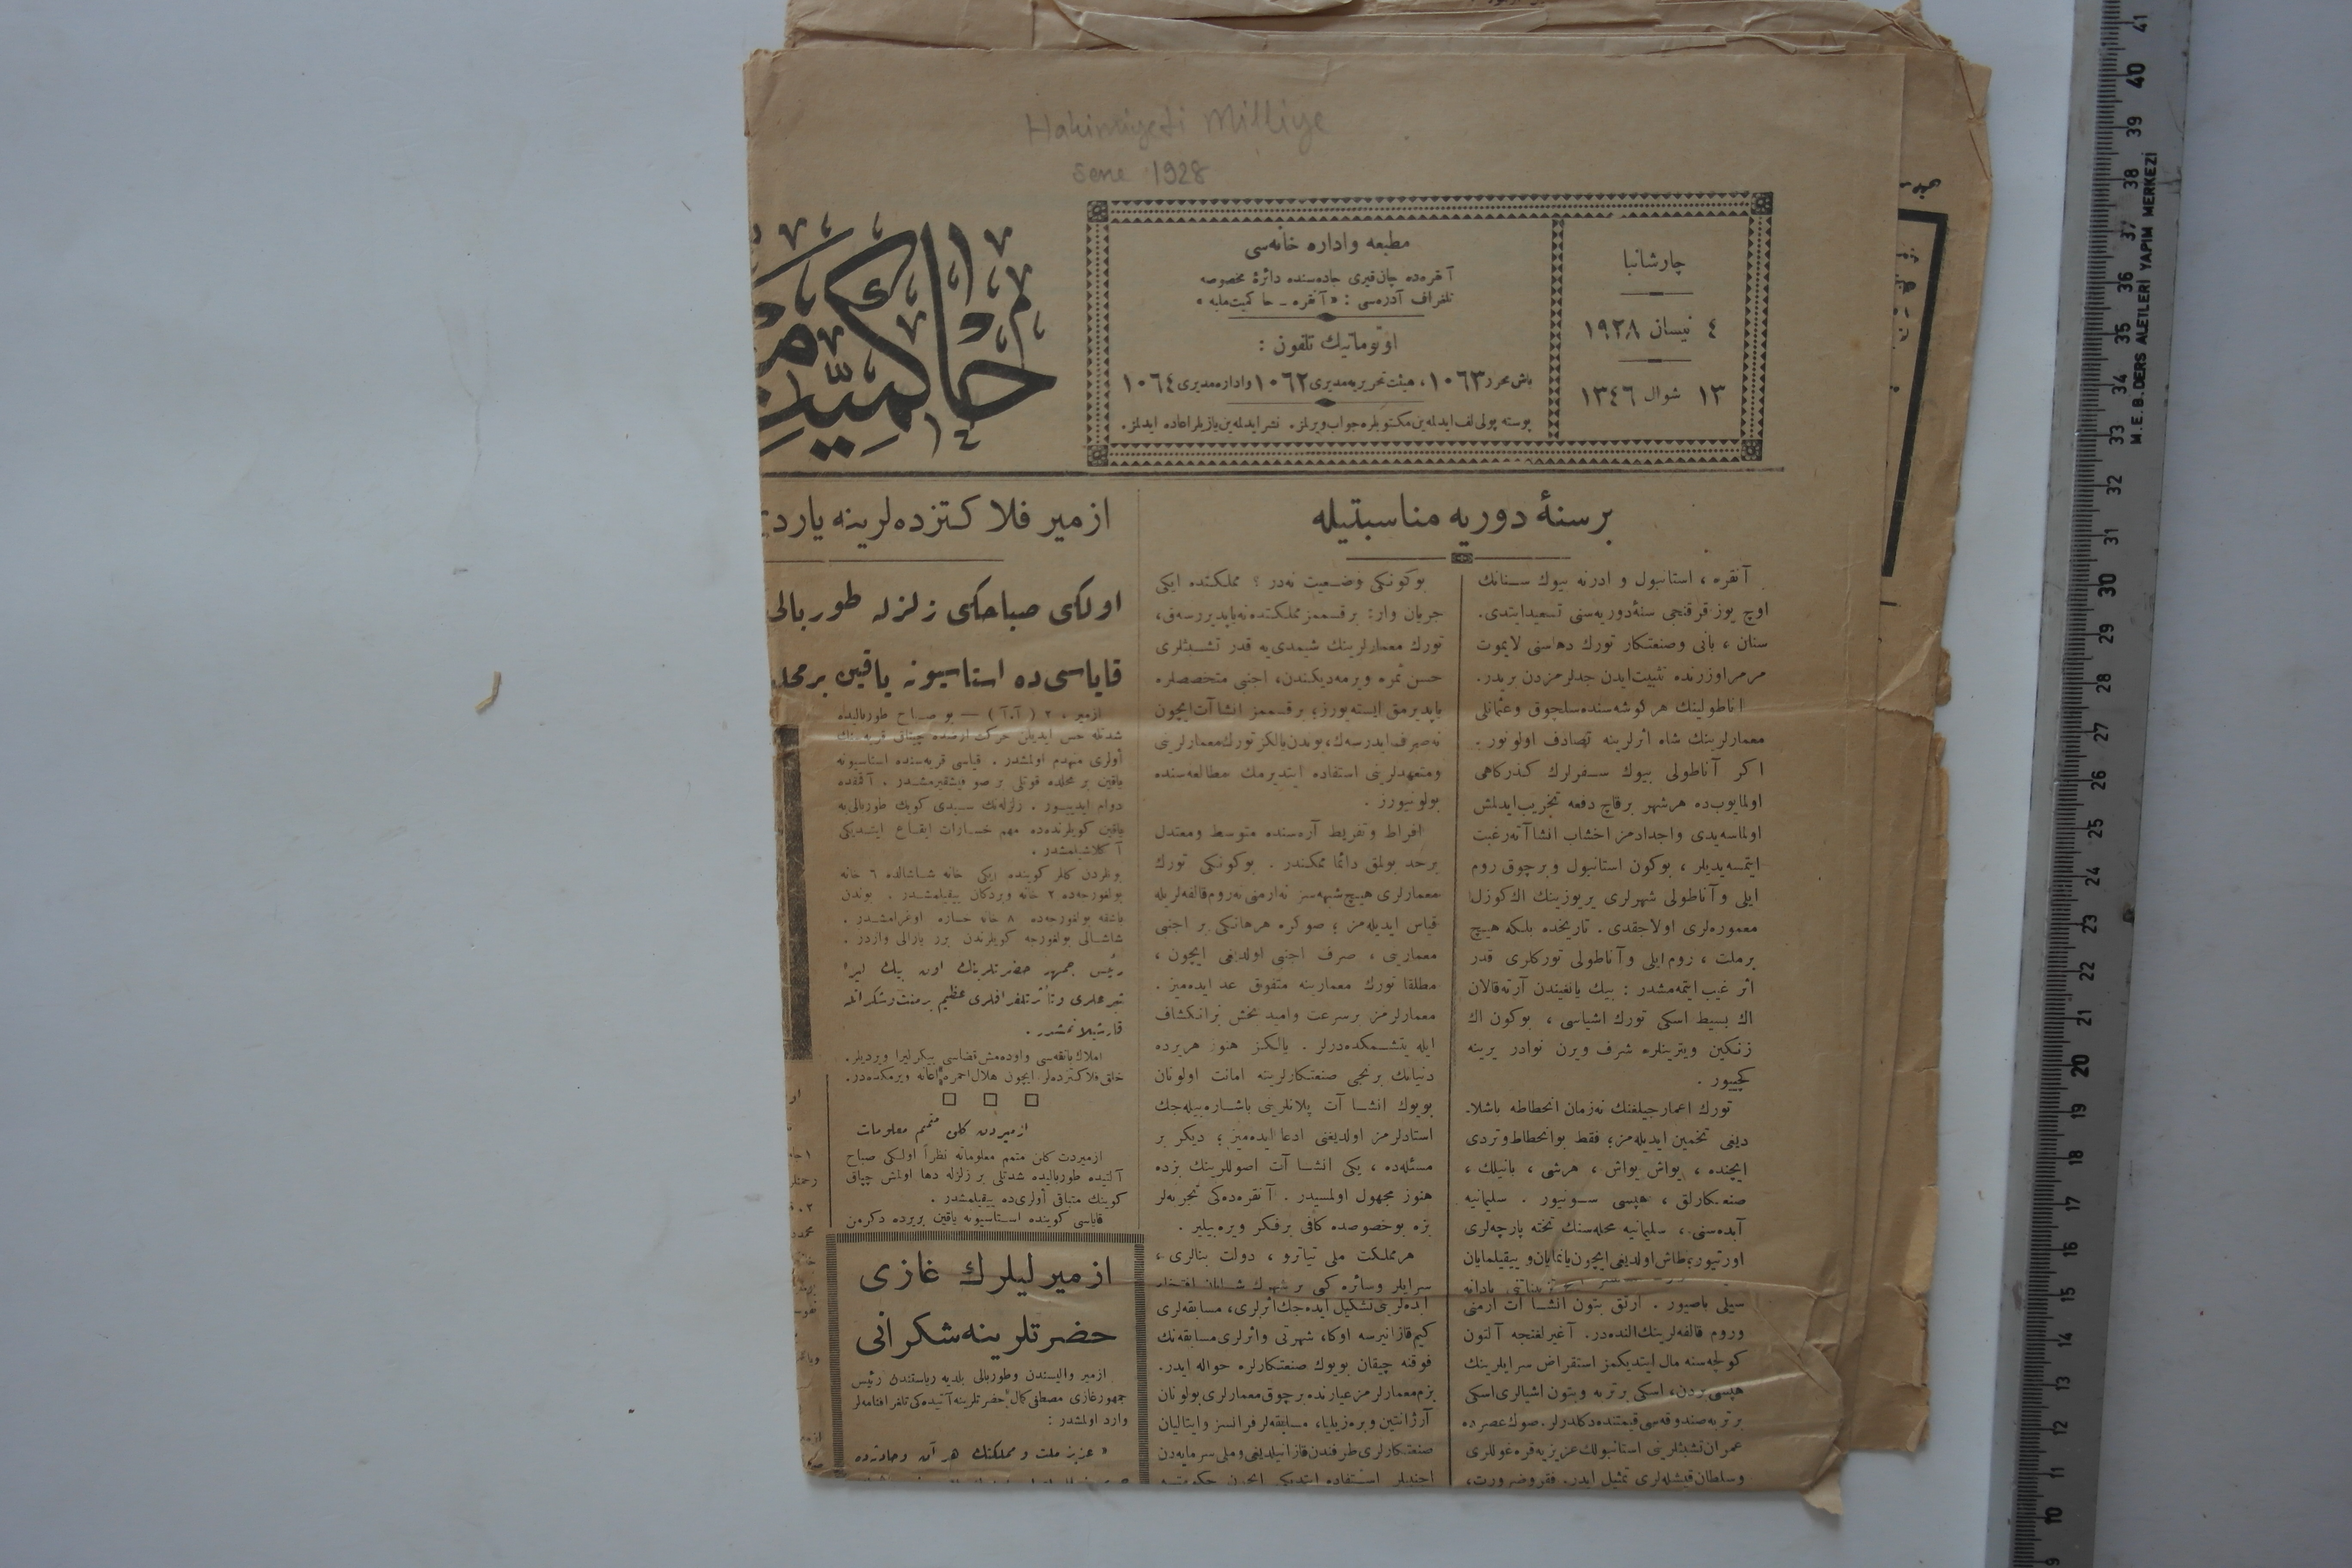 Hakimiyeti Milliye
Sene 1928
چارشانبا
٤ نیسان ١٩٢٨
١٣ شوال ١٣٤٦
مطبعه و اداره خانه‌سی
آنقره‌ده چان‌قیری جاده‌سنده دائرهٔ مخصوصه
تلغراف آدره‌سی : «آنقره ـ حاکمیت‌ملیه»
اوتوماتیك تلفون :
باش‌محرر ١٠٦٣، هیئت‌تحریریه‌مدیری ١٠٦٢ و اداره‌مدیری ١٠٦٤
پوسته پولی لف ایدلمه‌ین مکتوبلره جواب ویرلمز. نشر ایدلمه‌ین یازیلر اعاده ایدلمز.
حاکمیت
برسنهٔ دوریه مناسبتیله
آنقره ، استانبول و ادرنه بیوك سنانك
اوچ یوز قرقنجی سنهٔ دوریه‌سنی تسعید ایتدی.
سنان ، بانی وصنعتکار تورك دهاسنی لایموت
مرمر اوزرنده تثبیت ایدن جدلرمزدن بریدر.
اناطولینك هر کوشه‌سنده سلجوق وعثمانلی
معمارلرینك شاه اثرلرینه تصادف اولونور .
اکر آناطولی بیوك سفرلرك کذرکاهی
اولمایوب‌ده هرشهر برقاچ دفعه تخریب ایدلمش
اولماسه‌یدی واجدادمز اخشاب انشاآته رغبت
ایتمسه‌یدیلر ، بوکون استانبول وبرچوق روم
ایلی وآناطولی شهرلری یریوزینك اك کوزل
معموره‌لری اولاجقدی . تاریخده بلکه هیچ
برملت ، روم‌ایلی وآناطولی تورکلری قدر
اثر غیب ایتمه‌مشدر : بیك یانغیندن آرته‌قالان
اك بسیط اسکی تورك اشیاسی ، بوکون اك
زنکین ویترینلره شرف ویرن نوادر یرینه
کچیور .
تورك اعمارجیلغنك نه‌زمان انحطاطه باشلا-
دیغی تخمین ایدیله‌مز؛ فقط بوانحطاط وتردی
ایچنده ، یواش یواش ، هرشی ، بانیلك ،
صنعتکارلق ، هپسی سونیور . سلیمانیه
آبده‌سنی ، سلیمانیه محله‌سنك تخته پارچه‌لری
اورتیور؛ طاش اولدیغی ایچون یانمایان و ییقیلمایان
سیلی باصیور . آرتق بتون انشاآت ارمنی
وروم قالفه‌لرینك النده‌در. آغیرلغنجه آلتون
کولچه‌سنه مال ایتدیکمز استقراض سرایلرینك
هپسی بردن، اسکی برتربه وبتون اشیالری اسکی
برتربه صندوقه‌سی قیمتنده دکلدرلر. صوك عصرده
عمران تشبثلرینی استانبولك عزیزیه قره‌غوللری
وسلطان قیشله‌لری تمثیل ایدر. فقر وضرورت،
بوکونکی وضعیت نه‌در ؟ مملکتده ایکی
جریان وار: برقسممز مملکتده نه‌یاپدیررسه‌ق،
تورك معمارلرینك شیمدی‌یه قدر تشبثلری
حسن ثمره ویرمه‌دیکندن، اجنبی متخصصلره
یاپدیرمق ایسته‌یورز؛ برقسممز انشاآت ایچون
نه‌صرف ایدرسه‌ك، بوندن یالکز تورك معمارلرینی
ومتعهدلرینی استفاده ایتدیرمك مطالعه‌سنده
بولونیورز .
افراط وتفریط آره‌سنده متوسط ومعتدل
برحد بولمق دائما ممکندر . بوکونکی تورك
معمارلری هیچ شبهه‌سز نه‌ارمنی نه‌روم قالفه‌لریله
قیاس ایدیله‌مز ؛ صوکره هرهانکی بر اجنبی
معمارینی ، صرف اجنبی اولدیغی ایچون ،
مطلقا تورك معمارینه متفوق عد ایده‌میز .
معمارلرمز برسرعت وامید بخش برانکشاف
ایله یتشمکده‌درلر . یالکز هنوز هریرده
دنیانك برنجی صنعتکارلرینه امانت اولونان
بویوك انشاآت پلانلرینی باشاره‌بیله‌جك
استادلرمز اولدیغنی ادعا ایده‌میز ؛ دیکر بر
مسئله‌ده ، یکی انشاآت اصوللرینك بزده
هنوز مجهول اولمسیدر . آنقره‌ده‌کی تجربه‌لر
بزه بوخصوصده کافی برفکر ویره‌بیلیر .
هرمملکت ملی تیاترو ، دولت بنالری ،
سرایلر وسائره کبی برشهرك شایان افتخار
آبده‌لرینی تشکیل ایده‌جك اثرلری، مسابقه‌لری
کیم قازانیرسه اوکا، شهرتی واثرلری مسابقه‌نك
فوقنه چیقان بویوك صنعتکارلره حواله ایدر.
بزم معمارلرمز عیارنده برچوق معمارلری بولونان
آرژانتین وبره‌زیلیا، مسابقه‌لر فرانسز وایتالیان
صنعتکارلری طرفندن قازانیلدیغی وملی سرمایه‌دن
اجنبیلر استفاده ایتدیکی ایچون
ازمیر فلاکتزده‌لرینه یارد
اولکی صباحکی زلزله طوربالی
قایاسی‌ده استاسیونه یاقین برمحل
ازمیر ، ٢ ( آ.آ ) — بو صباح طوربالیده
شدتله حس ایدیلن حرکت ارضده چیناق قریه‌سنك
أولری منهدم اولمشدر . قیاسی قریه‌سنده استاسیونه
یاقین بر محلده قوتلی بر صو فیشقیرمشدر . آقمقده
دوام ایدییور . زلزله‌نك سببدی کوبك طوربالی‌یه
یاقین کویلرنده‌ده مهم خسارات ایقاع ایتدیکی
آکلاشیلمشدر .
بونلردن کالر کوینده ایکی خانه شاشالده ٦ خانه
بولغورجه‌ده ٢ خانه وبردکان ییقیلمشدر . بوندن
باشقه بولغورجه‌ده ٨ خانه خساره اوغرامشدر .
شاشالی بولغورجه کویلرندن برر یارالی واردر .
رئیس جمهور حضرتلرینك اون بیك لیرا
تبرعلری وتأثر تلغرافلری عظیم برمنت وشکرانله
قارشیلانمشدر .
املاك بانقه‌سی واوده‌مش قضاسی بیکر لیرا ویردیلر.
خلق فلاکتزده‌لر ایچون هلال احمره اعانه ویرمکده‌در.
ازمیردن کلن متمم معلومات
ازمیردن کلن متمم معلوماته نظراً اولکی صباح
آلتیده طوربالیده شدتلی بر زلزله دها اولمش چپاق
کوینك متباقی أولری‌ده ییقیلمشدر .
قایاسی کوینده استاسیونه یاقین بریرده دکرمن
ازمیرلیلرك غازی
حضرتلرینه شکرانی
ازمیر والیسندن وطوربالی بلدیه ریاستندن رئیس
جمهور غازی مصطفی کمال حضرتلرینه آتیده‌کی تلغرافنامه‌لر
وارد اولمشدر :
« عزیز ملت و مملکتك هر آن وحادثه‌ده